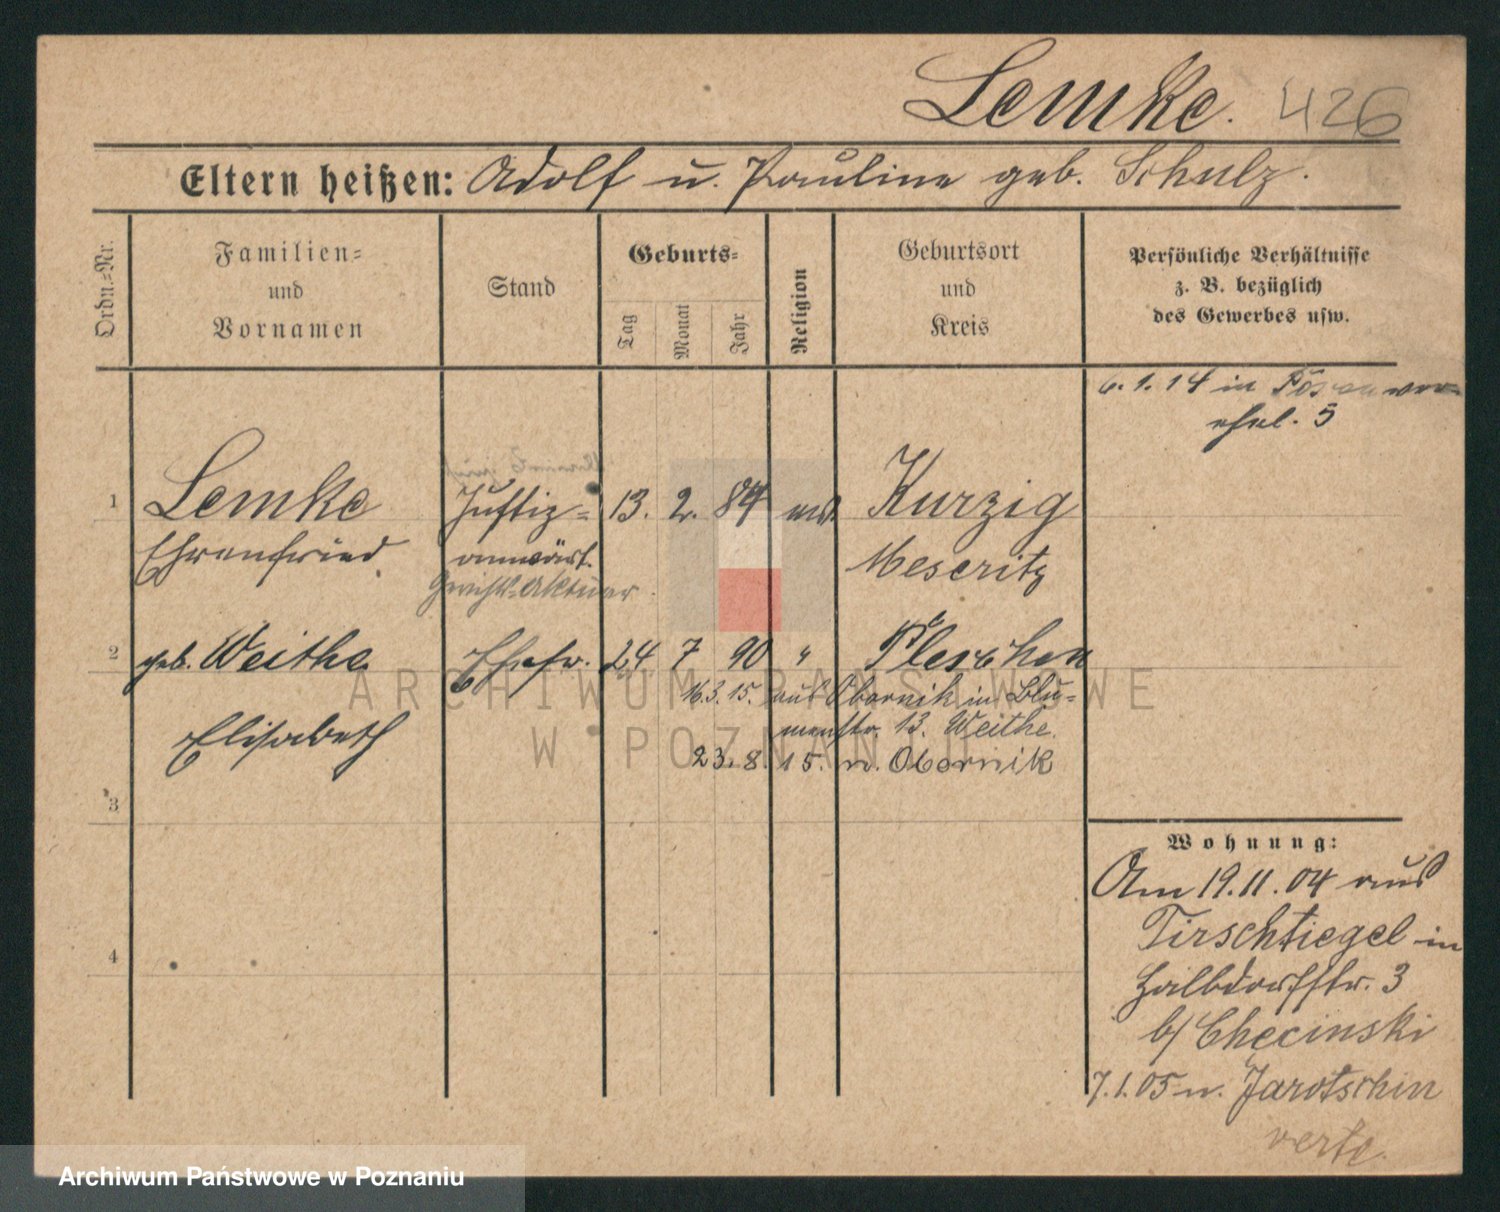 Lemke. 426
Eltern heißen: Adolf u. Pauline geb. Schulz.
Ordn.-Nr.
Familien-
und
Vornamen
Stand
Geburts-
Tag
Monat
Jahr
Religion
Geburtsort
und
Kreis
Persönliche Verhältnisse
z. B. bezüglich
des Gewerbes usw.
6. 1. 14 in Posen ver-
ehel. 5
1 Lemke Justiz- 13. 2. 84 Kurzig
Ehrenfried anwärt. Meseritz
Gerichts-Aktuar
2 geb. Weithe Ehefr. 24 7 90 " Pleschen
16.3.15. aus Obornik in Blu-
Elisabeth menstr. 13. Weithe.
23. 8. 15. n. Obornik
3
4
Wohnung:
Am 19.11.04 aus
Tirschtiegel in
Halbdorfstr. 3
b/ Chęcinski
7.1.05 n. Jarotschin
verte.
ARCHIWUM PAŃSTWOWE
W POZNANIU
Archiwum Państwowe w Poznaniu